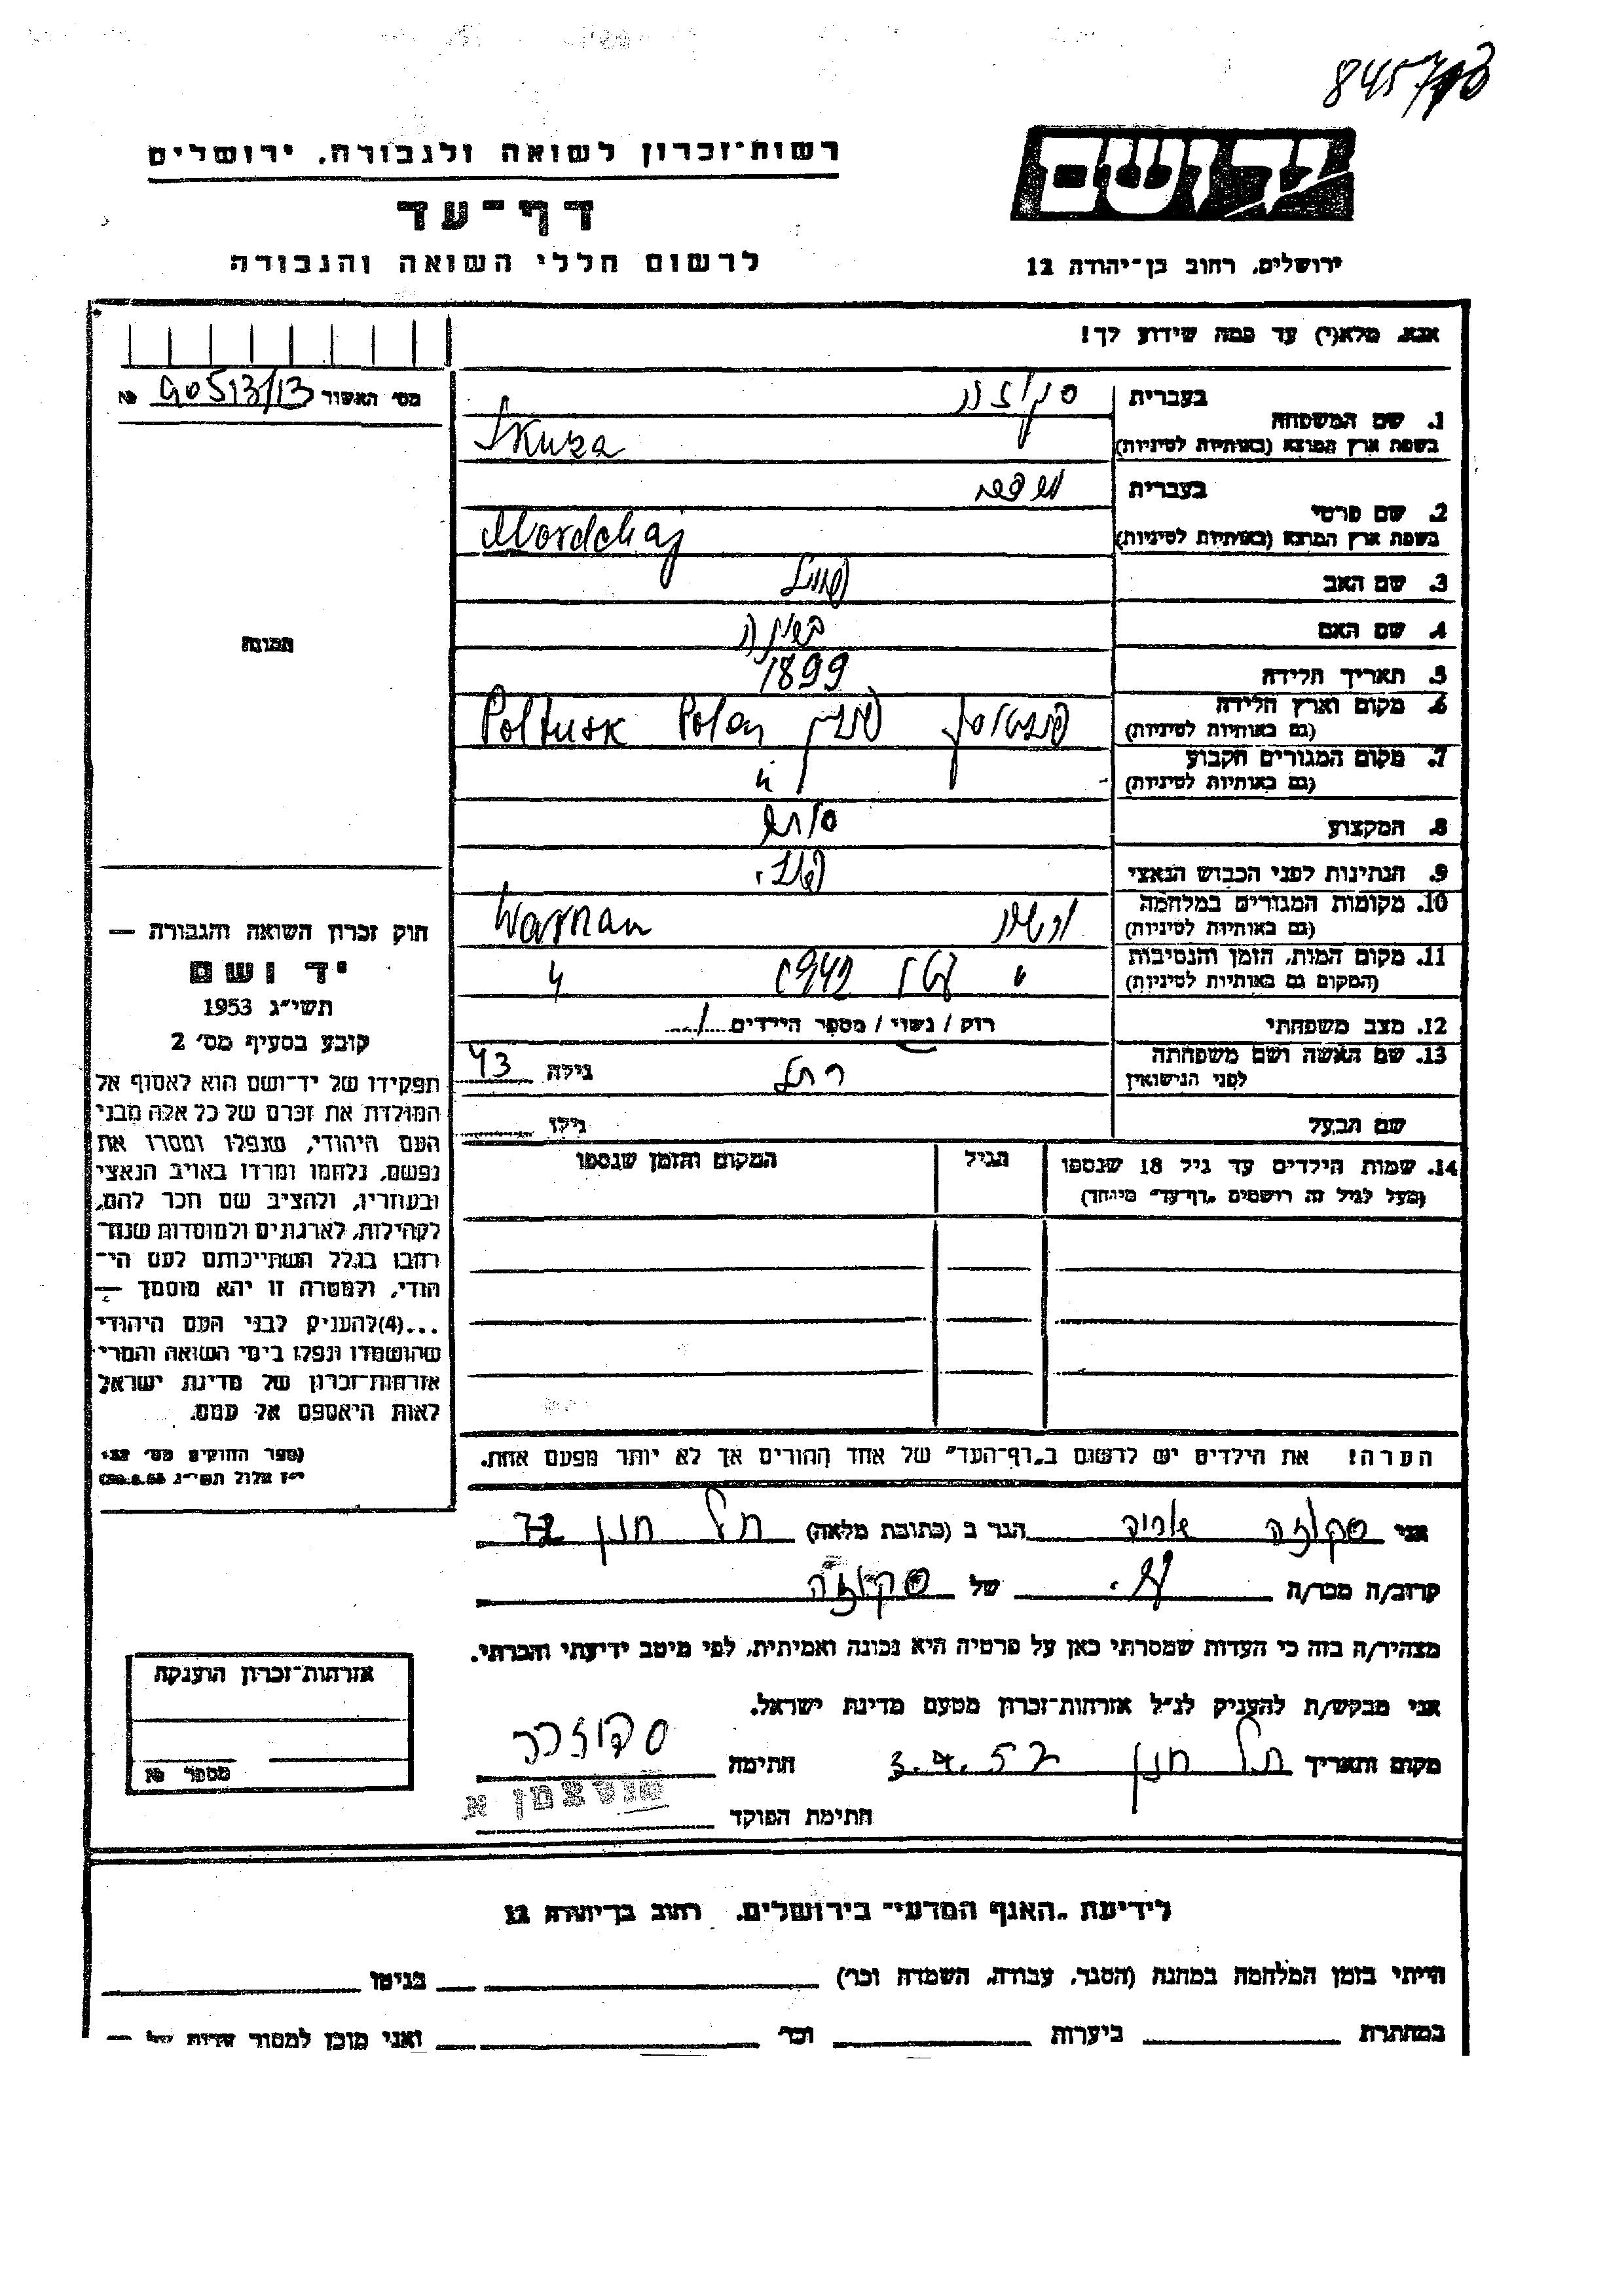 845713
רשות־זכרון לשואה ולגבורה, ירושלים
דף־עד
לרשום חללי השואה והגבורה
יד ושם
ירושלים, רחוב בן־יהודה 12
אנא, מלא(י) עד כמה שידוע לך!
מס׳ האשור 90513/13 №
בעברית סקוזה
1. שם המשפחה
בשפת ארץ המוצא (באותיות לטיניות) Skuza
בעברית
2. שם פרטי
בשפת ארץ המוצא (באותיות לטיניות) Mordchaj
3. שם האב
4. שם האם
5. תאריך הלידה 1899
6. מקום וארץ הלידה פולטוסק פולין Poltusk Polen
(גם באותיות לטיניות)
7. מקום המגורים הקבוע "
(גם באותיות לטיניות)
8. המקצוע סוחר
9. הנתינות לפני הכבוש הנאצי פולני
10. מקומות המגורים במלחמה Warnan
(גם באותיות לטיניות)
11. מקום המות, הזמן והנסיבות "
(המקום גם באותיות לטיניות)
12. מצב משפחתי רוק / נשוי / מספר הילדים 1
13. שם האשה ושם משפחתה רחל גילה 43
לפני הנישואין
שם הבעל גילו
14. שמות הילדים עד גיל 18 שנספו הגיל המקום והזמן שנספו
(מעל לגיל זה רושמים „דף־עד״ מיוחד)
הערה! את הילדים יש לרשום ב„דף־העד״ של אחד ההורים אך לא יותר מפעם אחת.
תמונה
חוק זכרון השואה והגבורה —
יד ושם
תשי״ג 1953
קובע בסעיף מס׳ 2
תפקידו של יד־ושם הוא לאסוף אל
המולדת את זכרם של כל אלה מבני
העם היהודי, שנפלו ומסרו את
נפשם, נלחמו ומרדו באויב הנאצי
ובעוזריו, ולהציב שם וזכר להם,
לקהילות, לארגונים ולמוסדות שנח־
רבו בגלל השתייכותם לעם הי־
הודי, ולמטרה זו יהא מוסמך —
...(4)להעניק לבני העם היהודי
שהושמדו ונפלו בימי השואה והמרי
אזרחות־זכרון של מדינת ישראל
לאות היאספם אל עמם.
(ספר החוקים מס׳ 132
י״ז אלול תשי״ג 28.8.53)
אני סקוזה אריה הגר ב (כתובת מלאה) תל חנן 72
קרוב/ה מכר/ה של סקוזה
מצהיר/ה בזה כי העדות שמסרתי כאן על פרטיה היא נכונה ואמיתית, לפי מיטב ידיעתי והכרתי.
אני מבקש/ת להעניק לנ״ל אזרחות־זכרון מטעם מדינת ישראל.
מקום ותאריך תל חנן 3.4.57 חתימה
חתימת הפוקד
אזרחות־זכרון הוענקה
מספר №
לידיעת „האגף המדעי״ בירושלים, רחוב בן־יהודה 12
הייתי בזמן המלחמה במחנה (הסגר, עבודה, השמדה וכו׳) בגיטו
במחתרת ביערות וכו׳ ואני מוכן למסור עדות על —